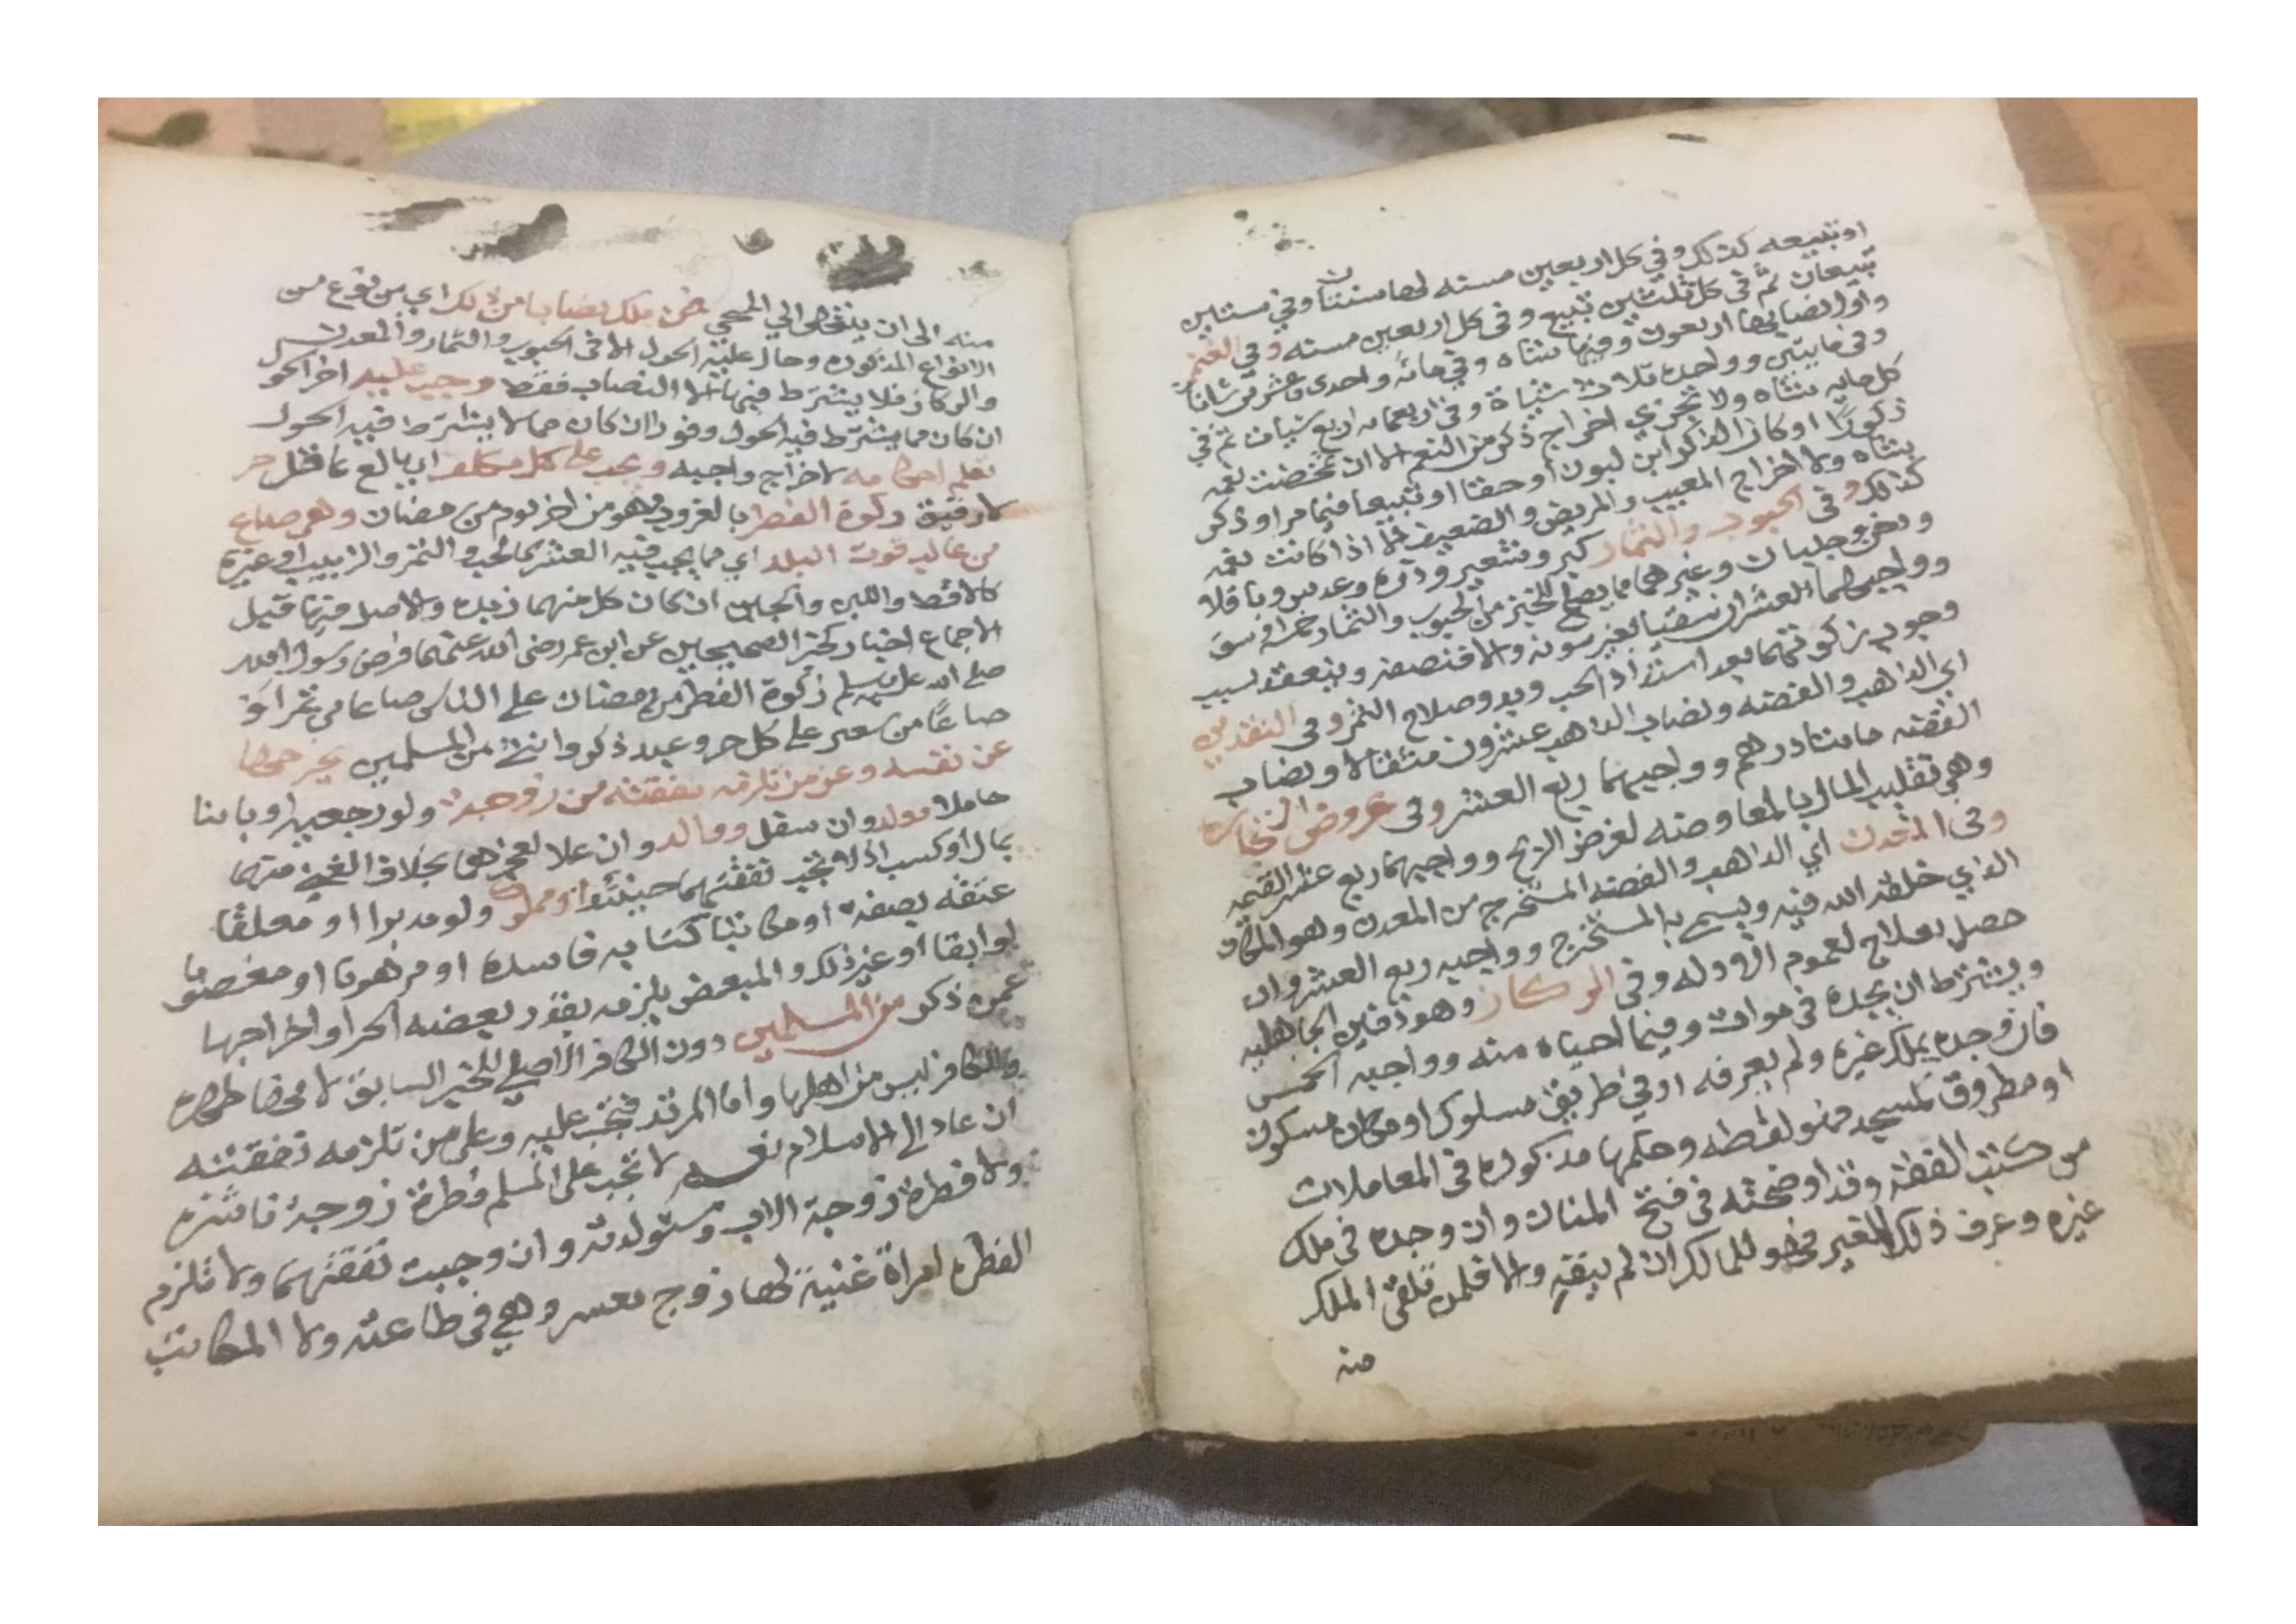 او تبيعه كذلك وفي كل اربعين مسنه لها سنتان وفي ستين
تبيعان ثم في كل ثلثين تبيع وفي كل اربعين مسنه وفي الغنم
واول نصابها اربعون وفيها شاه وفي مائه واحدى وعشرين شاتان
وفي مايتين وواحده ثلاث شياة وفي اربعمايه اربع شياه ثم في
كل مايه شاه ولا تجزي اخراج ذكر من النعم الا ان تمحضت نعمه
ذكورًا او كان الذكر ابن لبون او حقا او تبيعا فيما مر او ذكر
شاه ولا اخراج المعيب والمريض والضعيف الا اذا كانت نعمه
كذلك وفي الحبوب والثمار كبر وشعير وذره وعدس وباقلا
ودخن وجلبان وغيرها مما يصلح للخبز من الحبوب والثمار
وواجبهما العشر ان سقيا بغير مونه والا فنصفه وينعقد سبب
وجوب زكوتهما بعد اشتداد الحب وبدو صلاح الثمر وفي النقدين
اي الذاهب والفضه ونصاب الذاهب عشرون مثقالا ونصاب
الفضه مائتا درهم وواجبهما ربع العشر وفي عروض التجاره
وهي تقليب المال بالمعاوضه لغرض الربح وواجبها ربع عشر القيمه
وفي المعدن اي الذاهب والفضه المستخرج من المعدن وهو المكان
الذي خلقه الله فيه ويسمى به المستخرج وواجبه ربع العشر وان
حصل بعلاج لعموم الادله وفي الركاز وهو دفين الجاهليه
ويشترط ان يجده في موات وفيما احياه منه وواجبه الخمس
فان وجده بملك غيره ولم يعرفه او في طريق مسلوك او مكان مسكون
او مطروق كمسجد فهو لقطه وحكمها مذكوره في المعاملات
من كتب الفقه وقد اوضحته في فتح المنان وان وجده في ملك
غيره وعرف ذلك الغير فهو للمالك ان لم ينفه والا فلمن تلقى الملك
منه
منه الى ان ينتهى الي المحيي فمن ملك نصابا من ذلك اي من نوع من
الانواع المذكوره وحال عليه الحول الا في الحبوب والثمار والمعدن
والركاز فلا يشترط فيها الا النصاب فقط وجب عليه اخر الحول
ان كان مما يشترط فيه الحول وفورا ان كان مما لا يشترط فيه الحول
تعلم احكامه لاخراج واجبه ويجب على كل مكلف اي بالغ عاقل حر
لا رقيق زكوة الفطر بالغروب وهو من اخر يوم من رمضان وهي صاع
من غالب قوت البلد اي مما يجب فيه العشر كالحب والتمر والزبيب او غيره
كالاقط واللبن والجبن ان كان كل منهما زبده والاصل فيها قبل
الاجماع اخبار كخبر الصحيحين عن ابن عمر رضى الله عنهما فرض رسول الله
صلى الله عليه وسلم زكوة الفطر من رمضان على الناس صاعا من تمر او
صاعًا من شعير على كل حر وعبد ذكر وانثى من المسلمين يخرجها
عن نفسه وعن من تلزمه نفقته من زوجة ولو رجعيه او باينا
حاملا وولد وان سفل ووالد وان علا لعجزهما بخلاف الغني منهما
بمال او كسب اذ لا تجب نفقتهما حينئذ او مملوك ولو مدبرا او معلقًا
عتقه بصفة او مكاتبا كتابه فاسده او مرهونا او مغصوبا
او ابقا او غير ذلك والمبعض يلزمه بقدر بعضه الحر او اخراجها
عمن ذكر من المسلمين دون الكافر الاصلي للخبر السابق لانها طهره
والكافر ليس من اهلها واما المرتد فتجب عليه وعلى من تلزمه نفقته
ان عاد الى الاسلام نعم لا تجب على المسلم فطرة زوجة ناشزه
ولا فطرة زوجة الاب ومستولدته وان وجبت نفقتهما ولا تلزم
الفطره امراة غنية لها زوج معسر وهي في طاعته ولا المكاتب